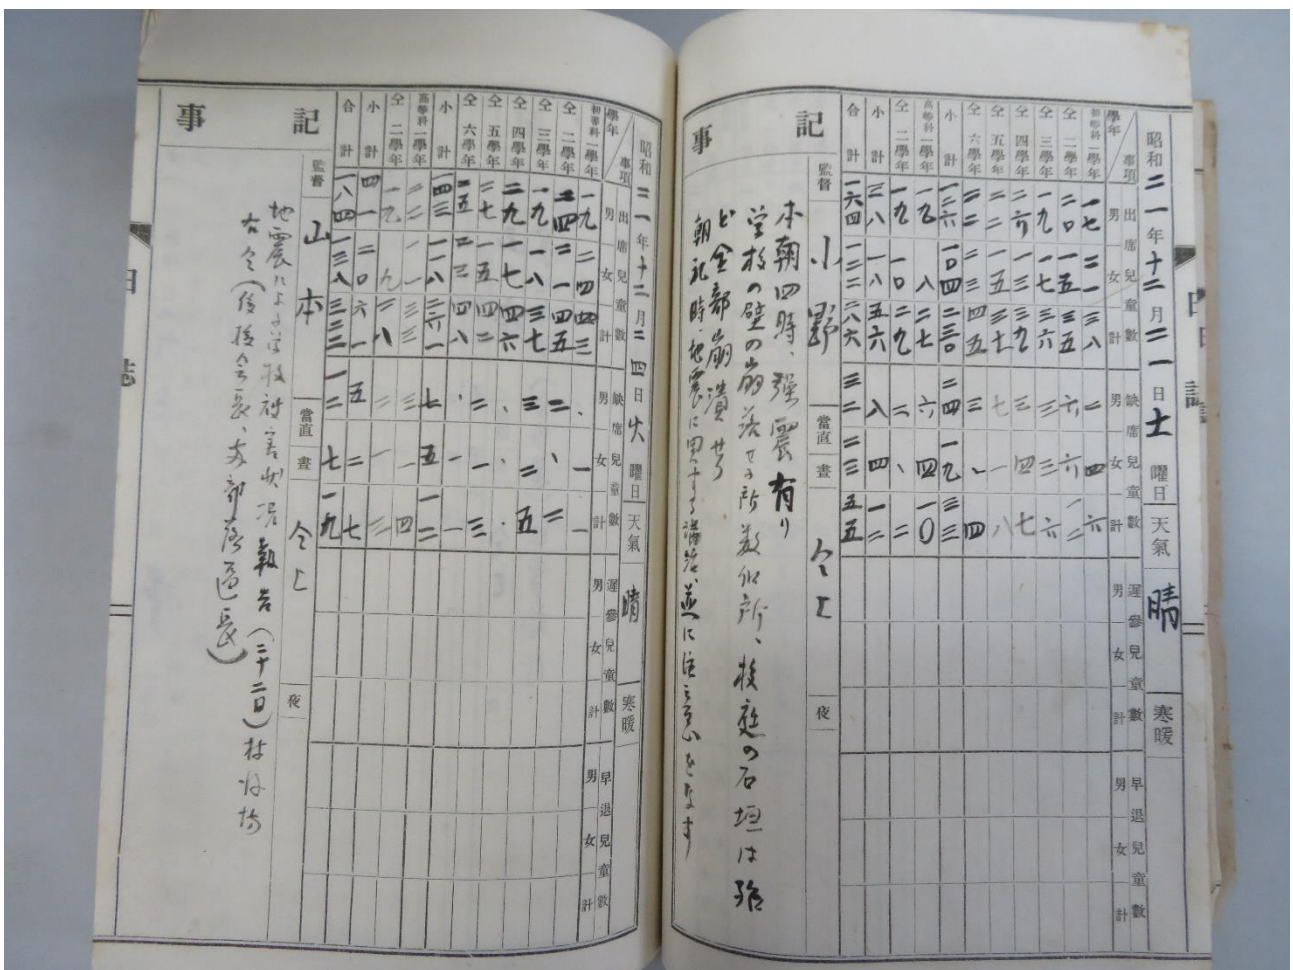 日誌
昭和二一年十二月二一日土曜日 天氣 晴 寒暖
學年 事項 出席兒童數 男 女 計 缺席兒童數 男 女 計 遲參兒童數 男 女 計 早退兒童數 男 女 計
初等科一學年 一七 二一 三八 二 四 六
仝二學年 二〇 一五 三五 六 六 一二
仝三學年 一九 一七 三六 三 三 六
仝四學年 二六 一三 三九 三 四 七
仝五學年 二二 一五 三七 七 一 八
仝六學年 二二 二三 四五 三 一 四
小計 一二六 一〇四 二三〇 二四 一九 四三
高等科一學年 一九 八 二七 六 四 一〇
仝二學年 一九 一〇 二九 二 、 二
小計 三八 一八 五六 八 四 一二
合計 一六四 一二二 二八六 三二 二三 五五
記事 監督 小野 當直 晝 仝上 夜
本朝四時、強震有り
学校の壁の崩落せる所数個所、校庭の石垣は殆
ど全部崩潰せり
朝礼時、地震に関する講話、並に注意をなす
昭和二一年十二月二四日火曜日 天氣 晴 寒暖
學年 事項 出席兒童數 男 女 計 缺席兒童數 男 女 計 遲參兒童數 男 女 計 早退兒童數 男 女 計
初等科一學年 一九 二四 四三 、 一 一
仝二學年 二四 二一 四五 二 、 二
仝三學年 一九 一八 三七 三 二 五
仝四學年 二九 一七 四六 、 、
仝五學年 二七 一五 四二 二 一 三
仝六學年 二五 二三 四八 、 一 一
小計 一四三 一一八 二六一 七 五 一二
高等科一學年 二二 一一 三三 三 一 四
仝二學年 一九 九 二八 二 一 三
小計 四一 二〇 六一 五 二 七
合計 一八四 一三八 三二二 一二 七 一九
記事 監督 山本 當直 晝 仝上 夜
地震による学校被害状況報告（二十二日）村役場
右仝（後援会長、各部落區長）
日誌